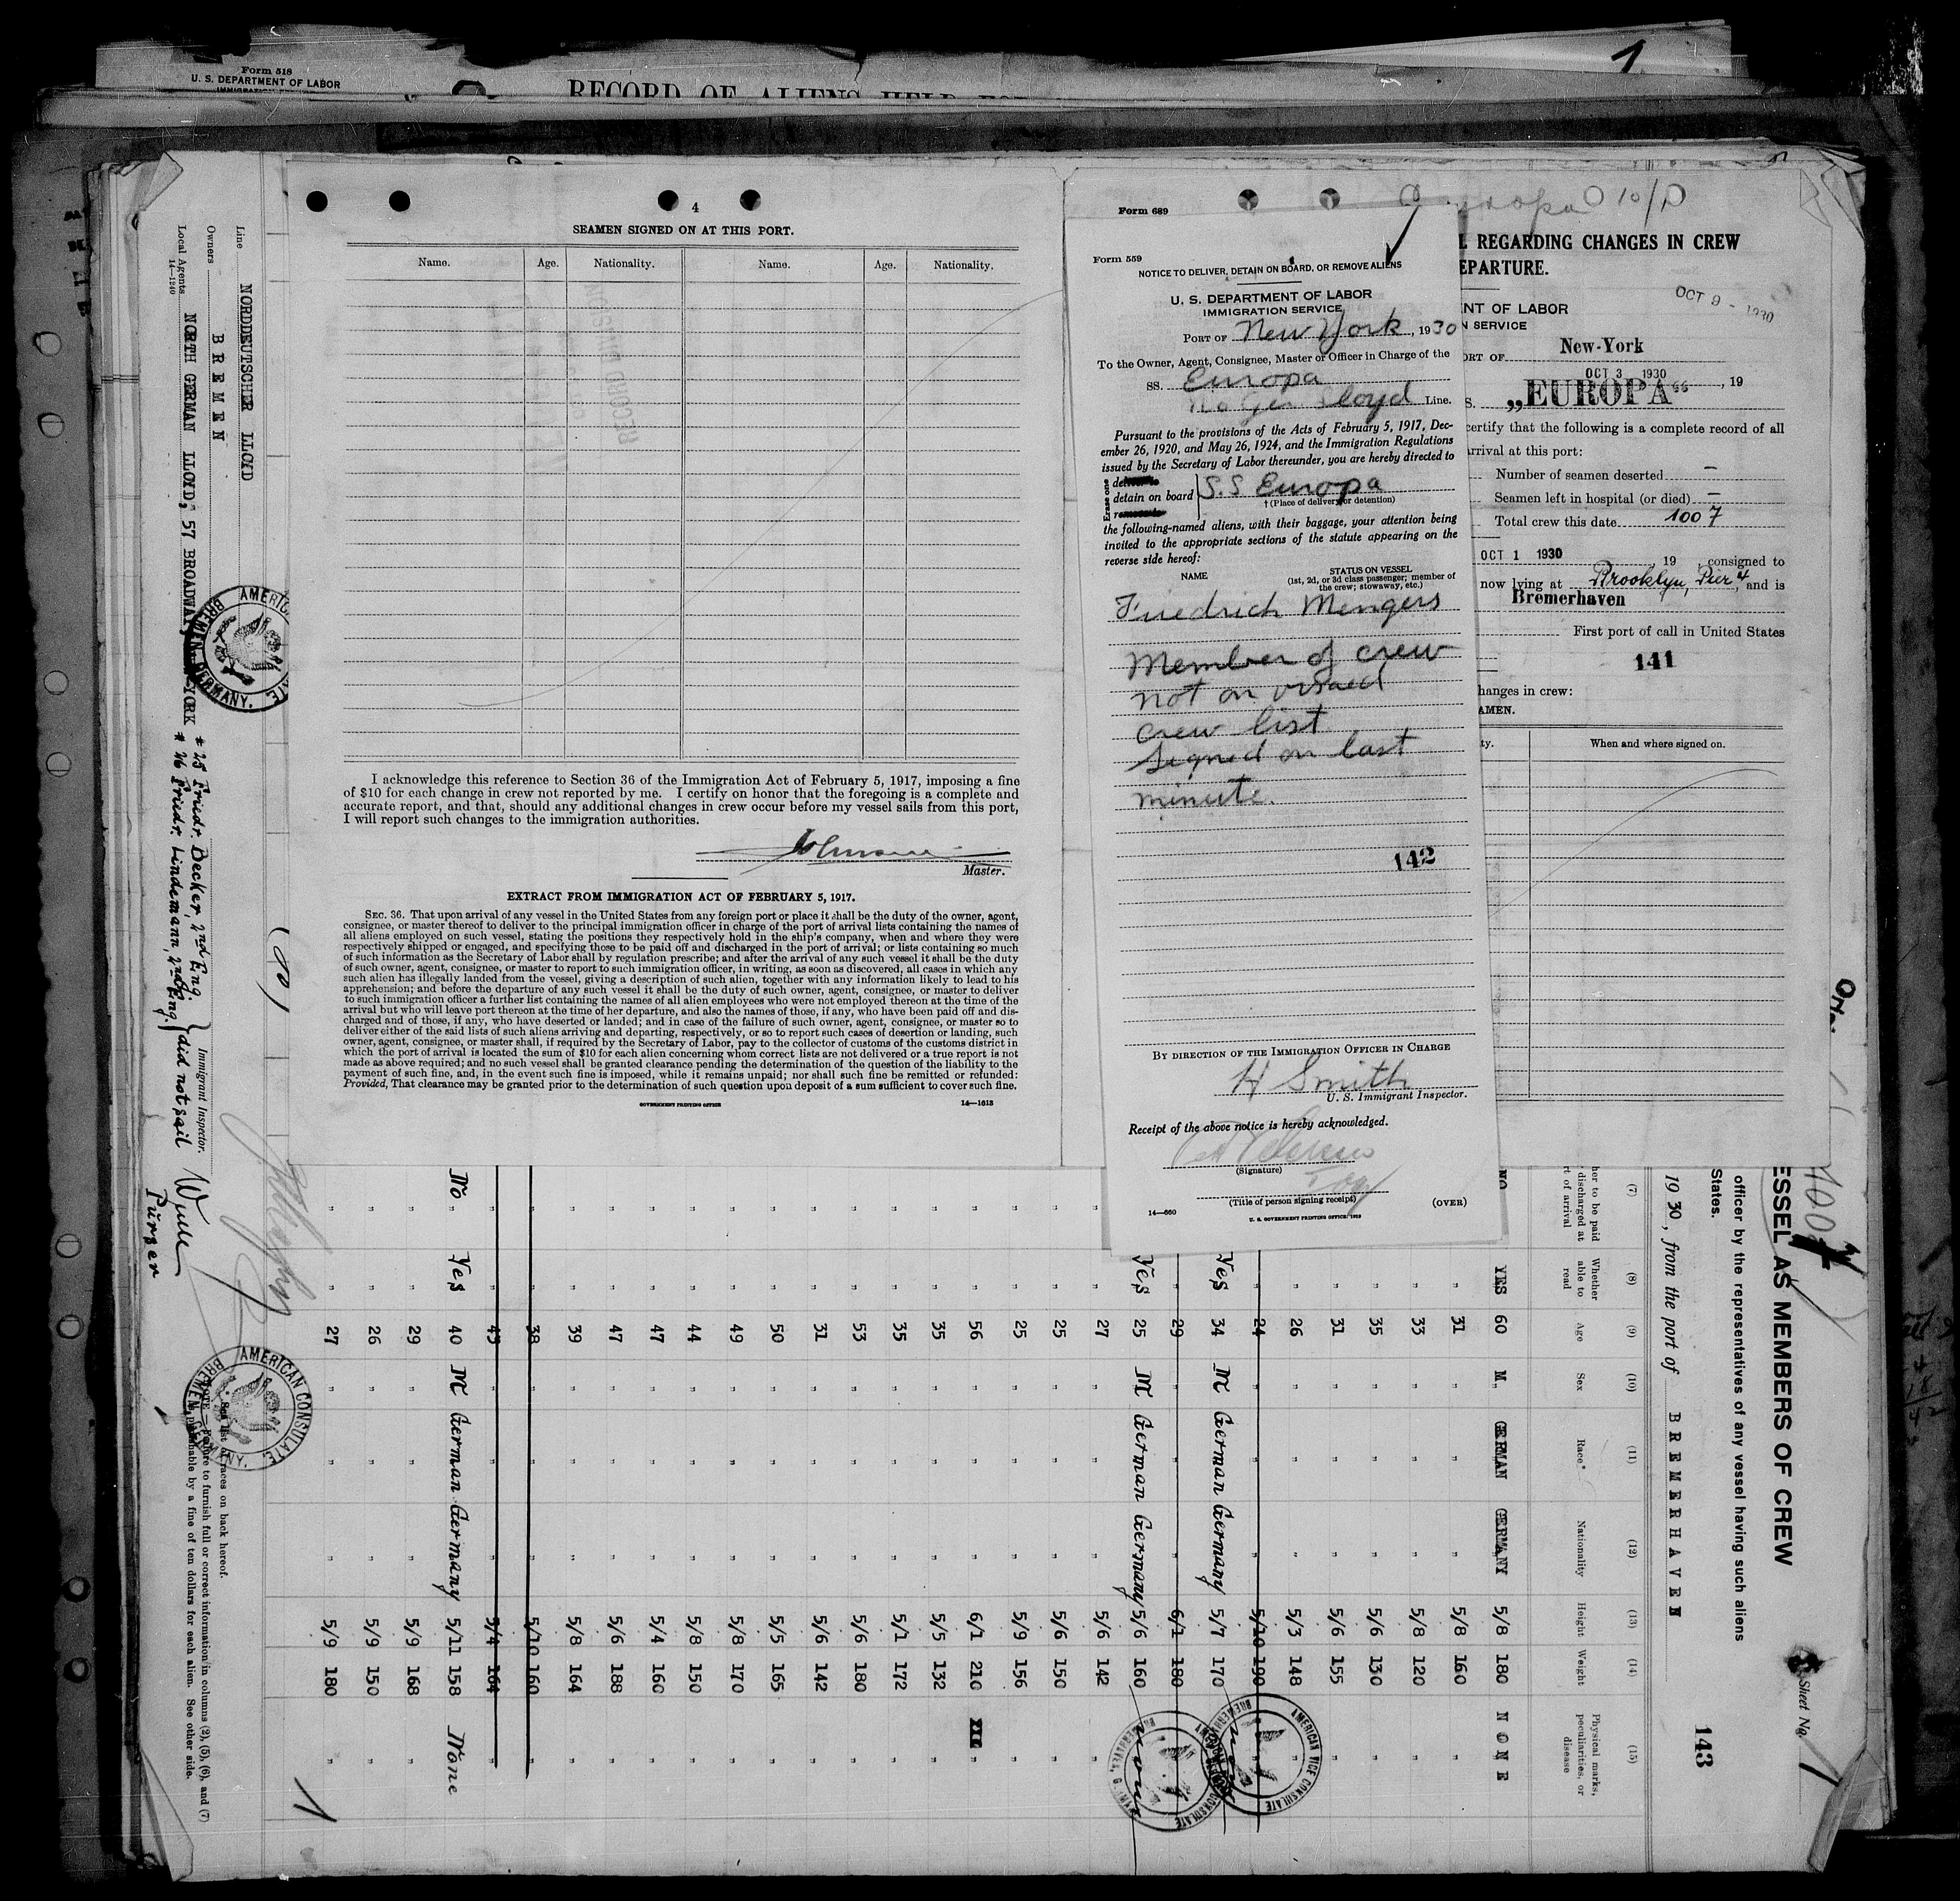 1
Form 518
U. S. DEPARTMENT OF LABOR
RECORD OF ALIENS HELD
4
SEAMEN SIGNED ON AT THIS PORT.
Name. Age. Nationality. Name. Age. Nationality.
RECORD DIVISION
I acknowledge this reference to Section 36 of the Immigration Act of February 5, 1917, imposing a fine
of $10 for each change in crew not reported by me. I certify on honor that the foregoing is a complete and
accurate report, and that, should any additional changes in crew occur before my vessel sails from this port,
I will report such changes to the immigration authorities.
Master.
EXTRACT FROM IMMIGRATION ACT OF FEBRUARY 5, 1917.
SEC. 36. That upon arrival of any vessel in the United States from any foreign port or place it shall be the duty of the owner, agent,
consignee, or master thereof to deliver to the principal immigration officer in charge of the port of arrival lists containing the names of
all aliens employed on such vessel, stating the positions they respectively hold in the ship's company, when and where they were
respectively shipped or engaged, and specifying those to be paid off and discharged in the port of arrival; or lists containing so much
of such information as the Secretary of Labor shall by regulation prescribe; and after the arrival of any such vessel it shall be the duty
of such owner, agent, consignee, or master to report to such immigration officer, in writing, as soon as discovered, all cases in which any
such alien has illegally landed from the vessel, giving a description of such alien, together with any information likely to lead to his
apprehension; and before the departure of any such vessel it shall be the duty of such owner, agent, consignee, or master to deliver
to such immigration officer a further list containing the names of all alien employees who were not employed thereon at the time of the
arrival but who will leave port thereon at the time of her departure, and also the names of those, if any, who have been paid off and dis-
charged and of those, if any, who have deserted or landed; and in case of the failure of such owner, agent, consignee, or master so to
deliver either of the said lists of such aliens arriving and departing, respectively, or so to report such cases of desertion or landing, such
owner, agent, consignee, or master shall, if required by the Secretary of Labor, pay to the collector of customs of the customs district in
which the port of arrival is located the sum of $10 for each alien concerning whom correct lists are not delivered or a true report is not
made as above required; and no such vessel shall be granted clearance pending the determination of the question of the liability to the
payment of such fine, and, in the event such fine is imposed, while it remains unpaid; nor shall such fine be remitted or refunded:
Provided, That clearance may be granted prior to the determination of such question upon deposit of a sum sufficient to cover such fine.
GOVERNMENT PRINTING OFFICE 14—1613
Form 689
Form 559
NOTICE TO DELIVER, DETAIN ON BOARD, OR REMOVE ALIENS
U. S. DEPARTMENT OF LABOR
IMMIGRATION SERVICE
PORT OF New York, 1930
To the Owner, Agent, Consignee, Master or Officer in Charge of the
SS. Europa
No Ger Lloyd Line.
Pursuant to the provisions of the Acts of February 5, 1917, Dec-
ember 26, 1920, and May 26, 1924, and the Immigration Regulations
issued by the Secretary of Labor thereunder, you are hereby directed to
Erase one
deliver to
detain on board S.S Europa
remove to
† (Place of delivery or detention)
the following-named aliens, with their baggage, your attention being
invited to the appropriate sections of the statute appearing on the
reverse side hereof:
NAME STATUS ON VESSEL
(1st, 2d, or 3d class passenger; member of
the crew; stowaway, etc.)
Friedrich Mengers
Member of crew
not on visaed
crew list
Signed on last
minute.
142
BY DIRECTION OF THE IMMIGRATION OFFICER IN CHARGE
H Smith
U. S. Immigrant Inspector.
Receipt of the above notice is hereby acknowledged.
(Signature)
(Title of person signing receipt)
(OVER)
14—660
U. S. GOVERNMENT PRINTING OFFICE: 1929
Europa O 10/
REGARDING CHANGES IN CREW
EPARTURE.
OCT 9 - 1930
NT OF LABOR
N SERVICE
ORT OF New-York
OCT 3 1930
, 19
S. „EUROPA“
certify that the following is a complete record of all
rrival at this port:
Number of seamen deserted —
Seamen left in hospital (or died) —
Total crew this date 1007
OCT 1 1930 , 19 , consigned to
now lying at Brooklyn, Pier 4, and is
Bremerhaven
First port of call in United States
141
hanges in crew:
AMEN.
ty. When and where signed on.
Line NORDDEUTSCHER LLOYD
Owners BREMEN
Local Agents NORTH GERMAN LLOYD, 57 BROADWAY YORK
14—1240
AMERICAN CONSULATE. BREMEN, GERMANY.
# 25 Friedr. Decker, 2nd Eng.
# 26 Friedr. Lindemann, 2nd Eng.
did not sail
Purser
Immigrant Inspector.
(80)
AMERICAN CONSULATE. BREMEN, GERMANY.
* See list of races on back hereof.
NOTE.—Failure to furnish full or correct information in columns (2), (5), (6), and (7)
is punishable by a fine of ten dollars for each alien. See other side.
ESSEL AS MEMBERS OF CREW
1007
Sheet No. 1
officer by the representatives of any vessel having such aliens
States.
1930, from the port of BREMERHAVEN
143
(7) (8) (9) (10) (11) (12) (13) (14) (15)
her to be paid
discharged at
rt of arrival
Whether
able to
read
Age
Sex
Race*
Nationality
Height
Weight
Physical marks,
peculiarities, or
disease
NO YES 60 M. GERMAN GERMANY 5/8 180 NONE
" 31 " " " 5/8 160 "
" 33 " " " 5/8 120 "
" 35 " " " 5/6 130 "
" 31 " " " 5/6 155 "
" 26 " " " 5/3 148 "
24 5/10 190
Yes 34 M German Germany 5/7 170 None
29 6/1 180
Yes 25 M German Germany 5/6 160 None
" " 27 " " " 5/6 142 "
" " 25 " " " 5/6 150 "
" " 25 " " " 5/9 156 "
" " 56 " " " 6/1 210 "
" " 35 " " " 5/5 132 "
" " 35 " " " 5/1 172 "
" " 53 " " " 5/6 180 "
" " 31 " " " 5/6 142 "
" " 50 " " " 5/5 165 "
" " 49 " " " 5/8 170 "
" " 44 " " " 5/8 150 "
" " 47 " " " 5/4 160 "
" " 47 " " " 5/6 188 "
" " 39 " " " 5/8 164 "
38 5/10 160
43 5/4 164
No Yes 40 M German Germany 5/11 158 None
" " 29 " " " 5/9 168 "
" " 26 " " " 5/9 150 "
" " 27 " " " 5/9 180 "
AMERICAN VICE CONSULATE
1